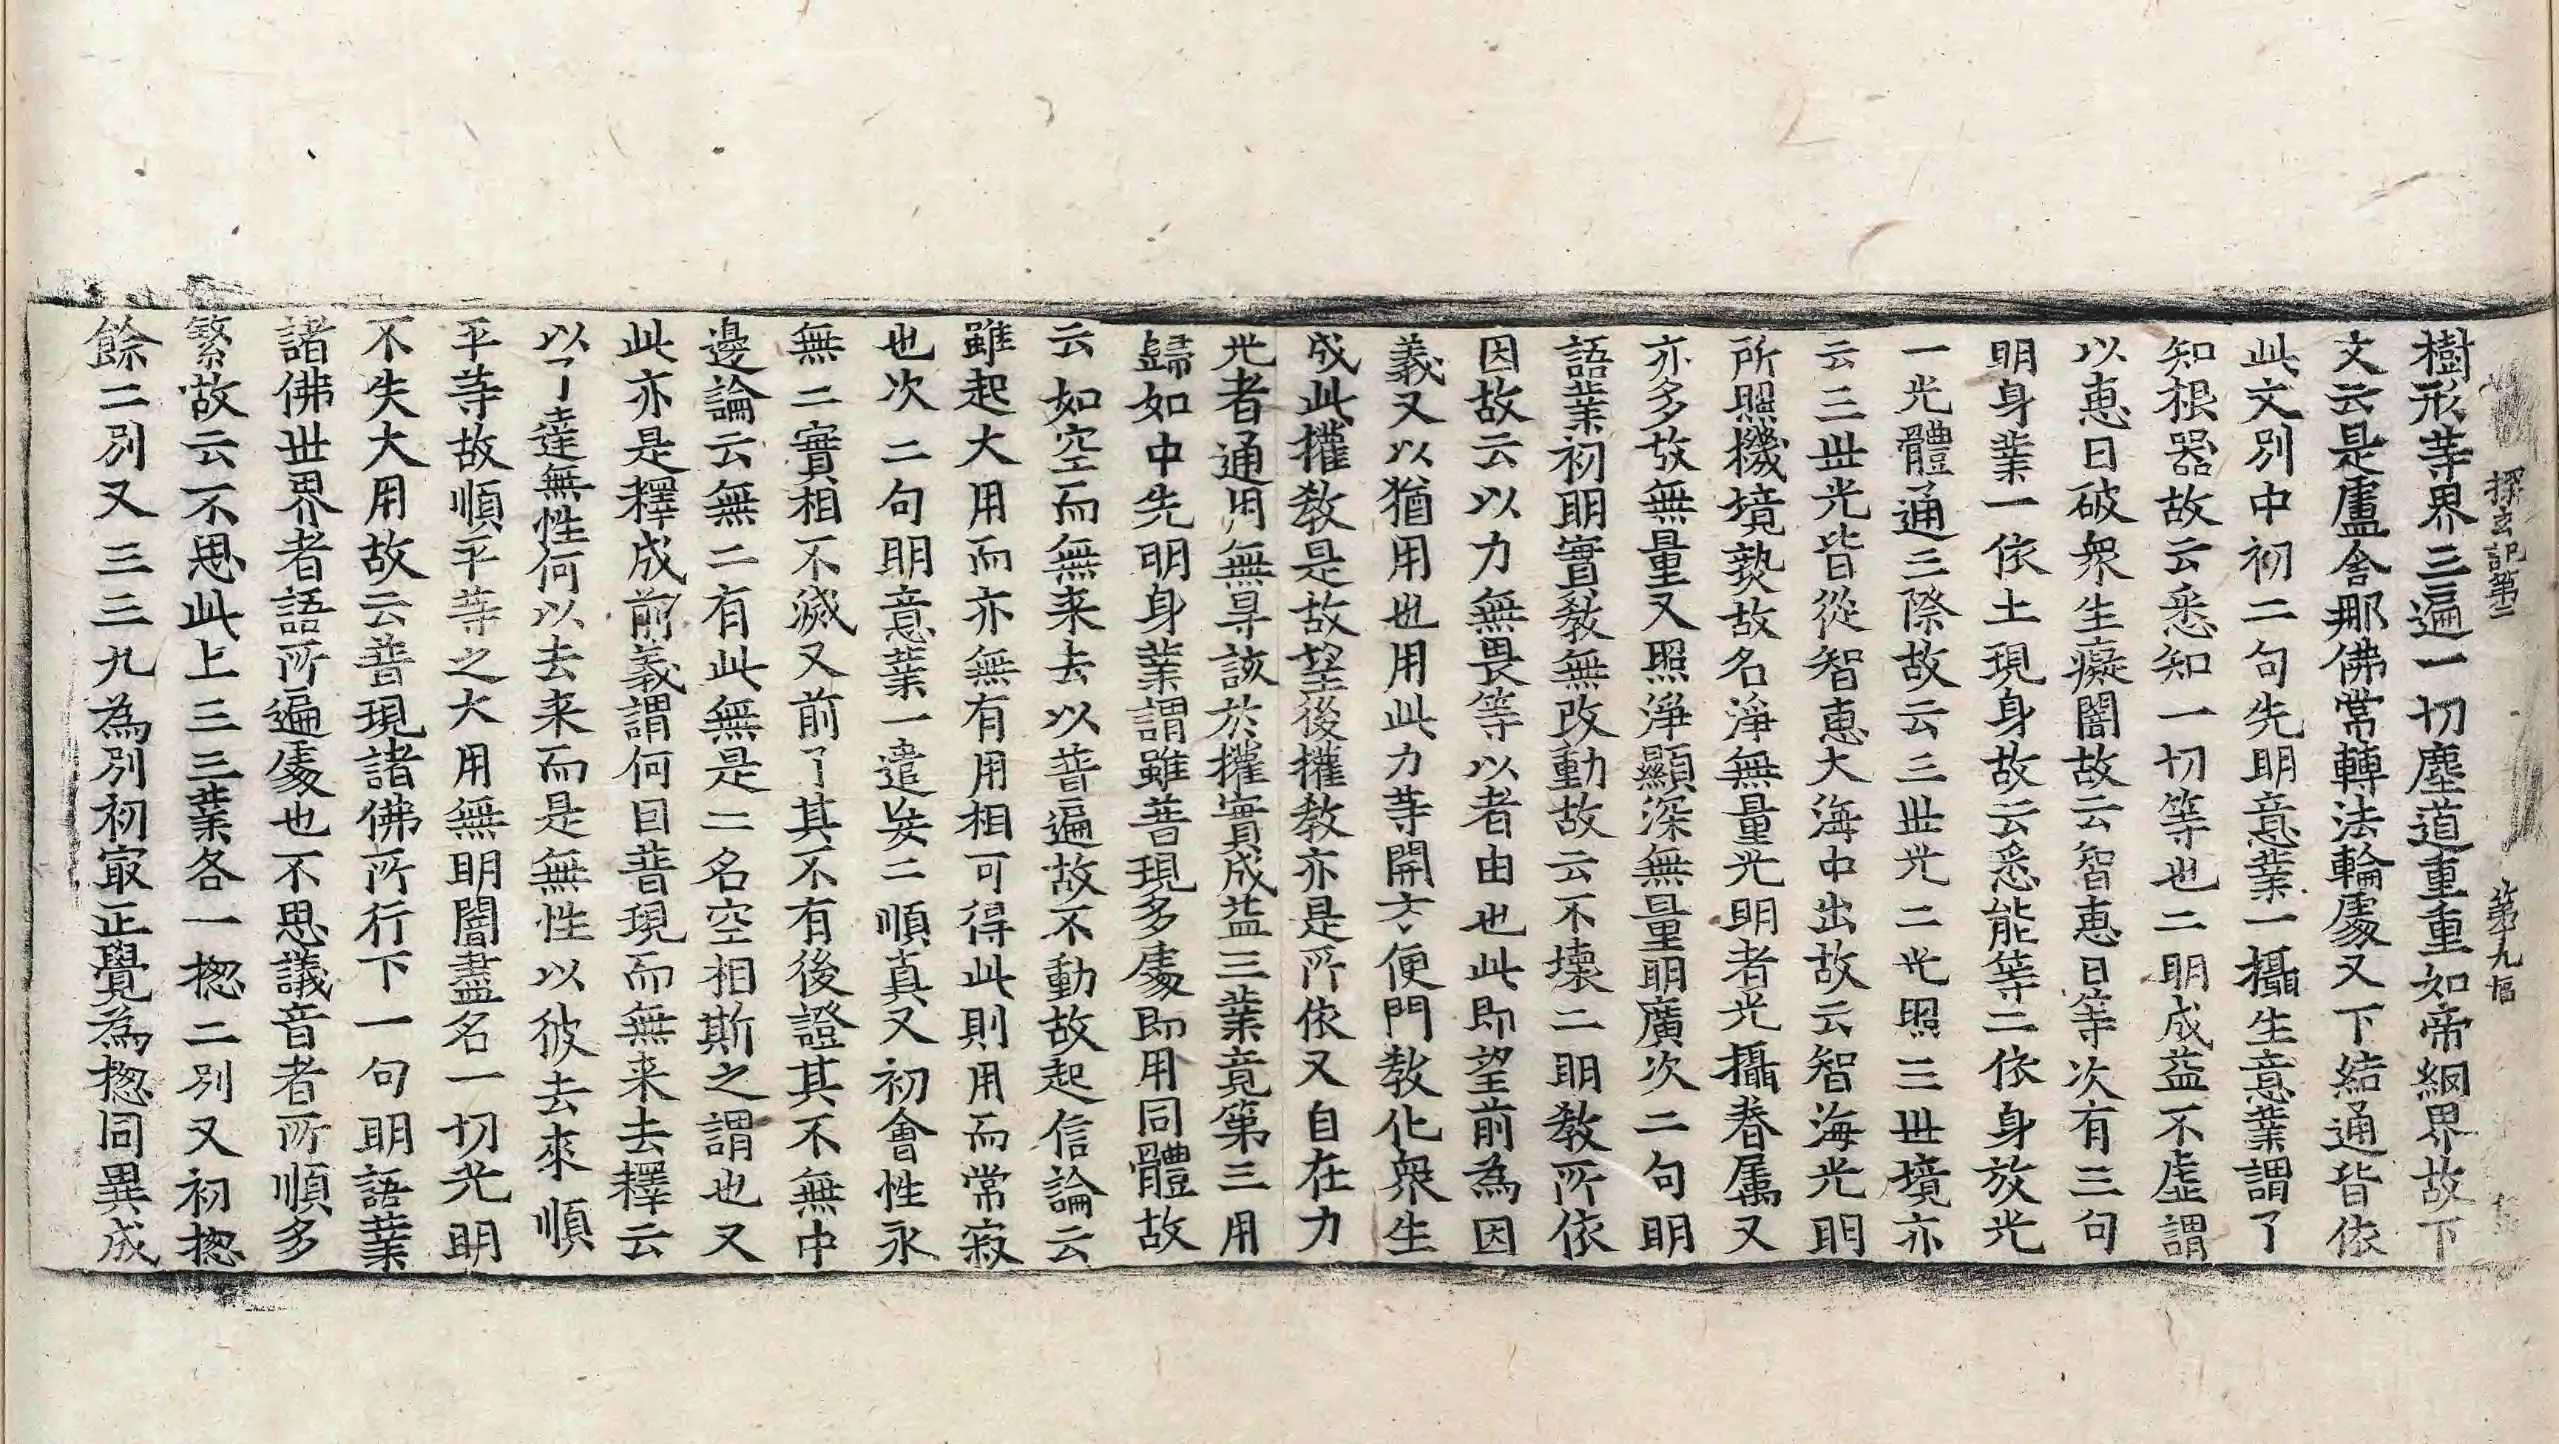 探玄記第二 第九幅
樹形等界三遍一切塵道重重如帝網界故下
文云是盧舍那佛常轉法輪處又下結通皆依
此文別中初二句先明意業一攝生意業謂了
知根器故云悉知一切等也二明成益不虛謂
以惠日破衆生癡闇故云智惠日等次有三句
明身業一依土現身故云悉能等二依身放光
一光體通三際故云三世光二光照三世境亦
云三世光皆從智惠大海中出故云智海光明
所照機境熟故名淨無量光明者光攝眷属又
亦多故無量又照淨顯深無量明廣次二句明
語業初明實教無改動故云不壞二明教所依
因故云以力無畏等以者由也此即望前為因
義又以猶用也用此力等開方便門教化衆生
成此權教是故望後權教亦是所依又自在力
光者通用無㝵該於權實成益三業竟第三用
歸如中先明身業謂雖普現多處即用同體故
云如空而無来去以普遍故不動故起信論云
雖起大用而亦無有用相可得此則用而常寂
也次二句明意業一遣妄二順真又初會性永
無二實相不滅又前了其不有後證其不無中
邊論云無二有此無是二名空相斯之謂也又
此亦是釋成前義謂何因普現而無来去釋云
以了達無性何以去来而是無性以彼去來順
平等故順平等之大用無明闇盡名一切光明
不失大用故云普現諸佛所行下一句明語業
諸佛世界者語所遍處也不思議音者所順多
繁故云不思此上三三業各一揔二別又初揔
餘二別又三三九為別初冣正覺為揔同異成